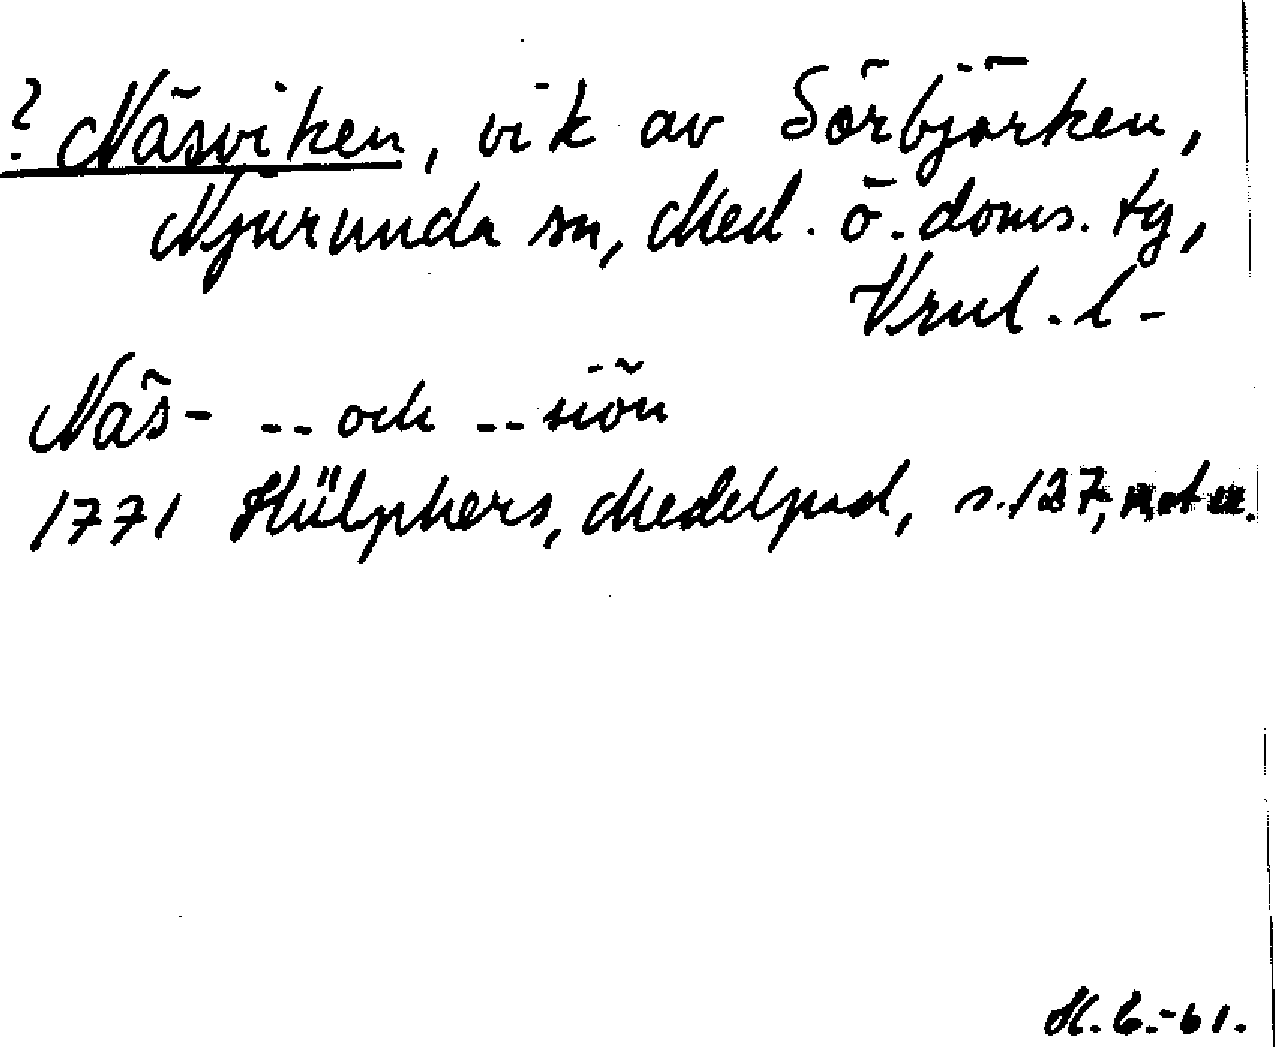 ? Näsviken, vik av Sörbjörken,
Njurunda sn, Med. ö. doms. tg,
Vrnl. l-
Näs- -- och -- siön
1771 Hülphers, Medelpad, s. 127, not u.
H. G. -61.